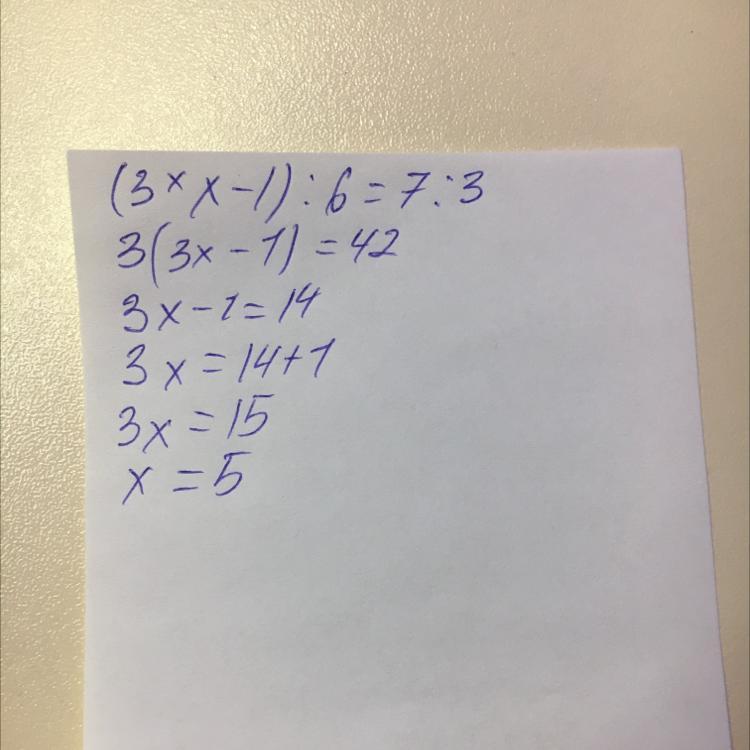 (3 × x - 1) : 6 = 7 : 3
3(3x - 1) = 42
3x - 1 = 14
3x = 14 + 1
3x = 15
x = 5